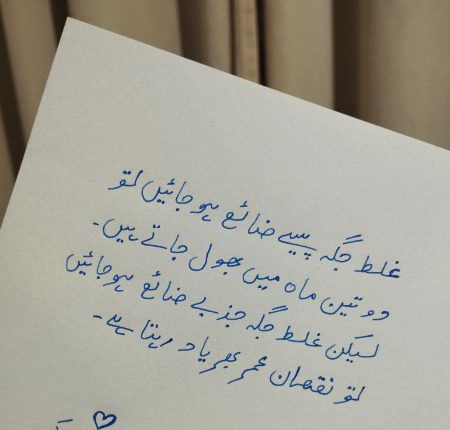 غلط جگہ پیسے ضائع ہو جائیں تو
دو تین ماہ میں بھول جاتے ہیں۔
لیکن غلط جگہ جذبے ضائع ہو جائیں
تو نقصان عمر بھر یاد رہتا ہے۔